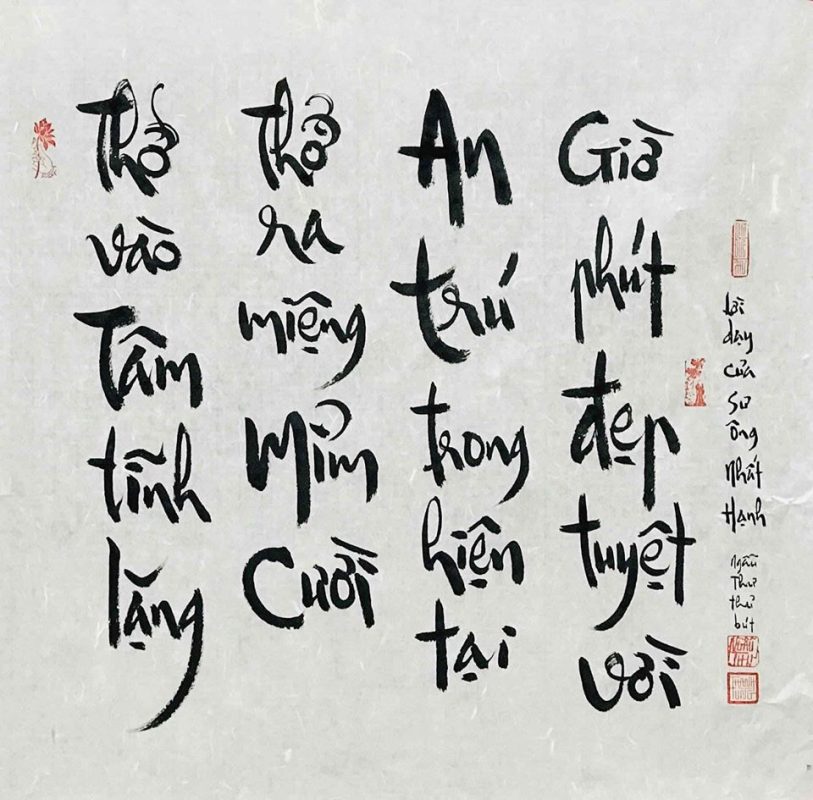 Thở vào Tâm tĩnh lặng
Thở ra miệng Mỉm Cười
An trú trong hiện tại
Giờ phút đẹp tuyệt vời
Lời dạy của Sư Ông Nhất Hạnh
Ngẫu Thư thủ bút